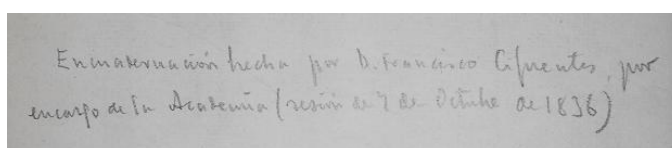 Encuadernación hecha por D. Francisco Cifuentes, por
encargo de la Academia (sesión de 7 de Octubre de 1836)